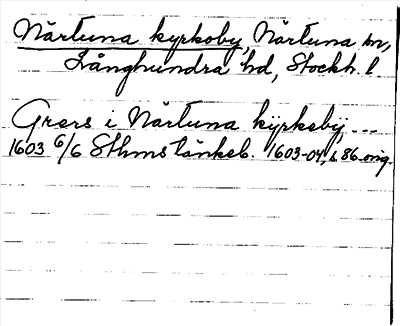 Närtuna kyrkoby, Närtuna sn,
Långhundra hd, Stockh. l.
Grers i Närtuna kyrkeby ...
1603 6/6 Sthms tänkeb. 1603-04, s 86 orig.